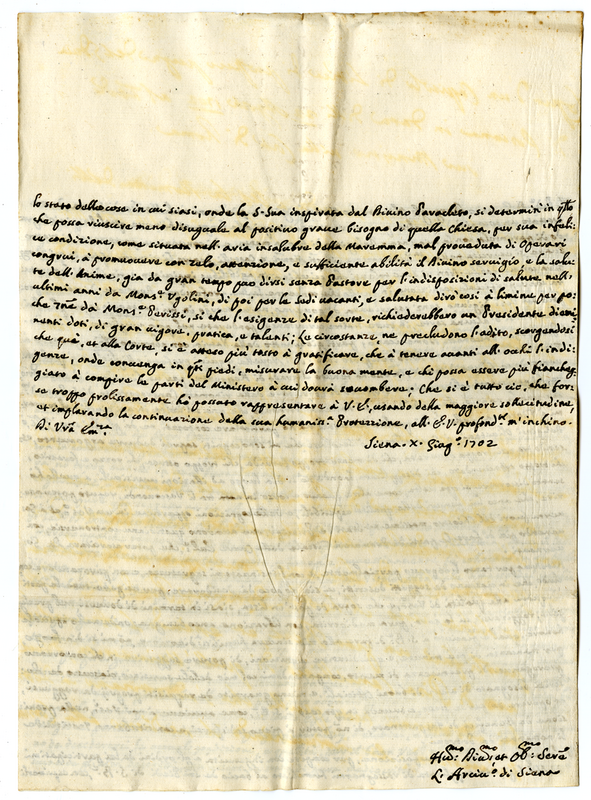 lo stato delle cose in cui siasi, onde la S. Sua inspirata dal Divino Paracleto, si determini in qsto
che possa riuscire meno disuguale al positivo grave bisogno di quella Chiesa, per sua infeli-
ce condizione, come situata nell'aria insalubre della Maremma, mal proveduta di Operari
congrui, à promuovere con zelo, attenzione, e sufficiente abilità il Divino servigio, e la salu-
te dell'Anime, già da gran tempo puo dirsi senza Pastore per l'indisposizioni di salute nell'
ultimi anni da Monsr Ugolini, di poi per le Sedi vacanti, e salutata dirò così à limine per po-
che da Monsr Pevissi, si che l'esigenze di tal sorte, richiederebbero un Presidente di emi-
nenti doti, di gran vigore, pratica, e talenti; Le circostanze ne precludono l'adito, scorgendosi
che quà, et alla Corte, si è atteso più tosto à gratificare, che à tenere avanti all'occhi l'indi-
genze, onde convenga in qti piedi, misurare la buona mente, e chi possa essere più fiancheg-
giato à compire le parti del Ministero à cui dovrà soccombere; Che si è tutto ciò, che for-
se troppo prolissamente hò possuto rappresentare à V. E., usando della maggiore sollecitudine,
et implorando la continuazione della sua humanissa Protezzione, all'E. V. profondte m'inchino.
Di Vra Emza
Siena X. Giugo 1702
Humo Divmo et Obmo Serre
L'Arcivo di Siena